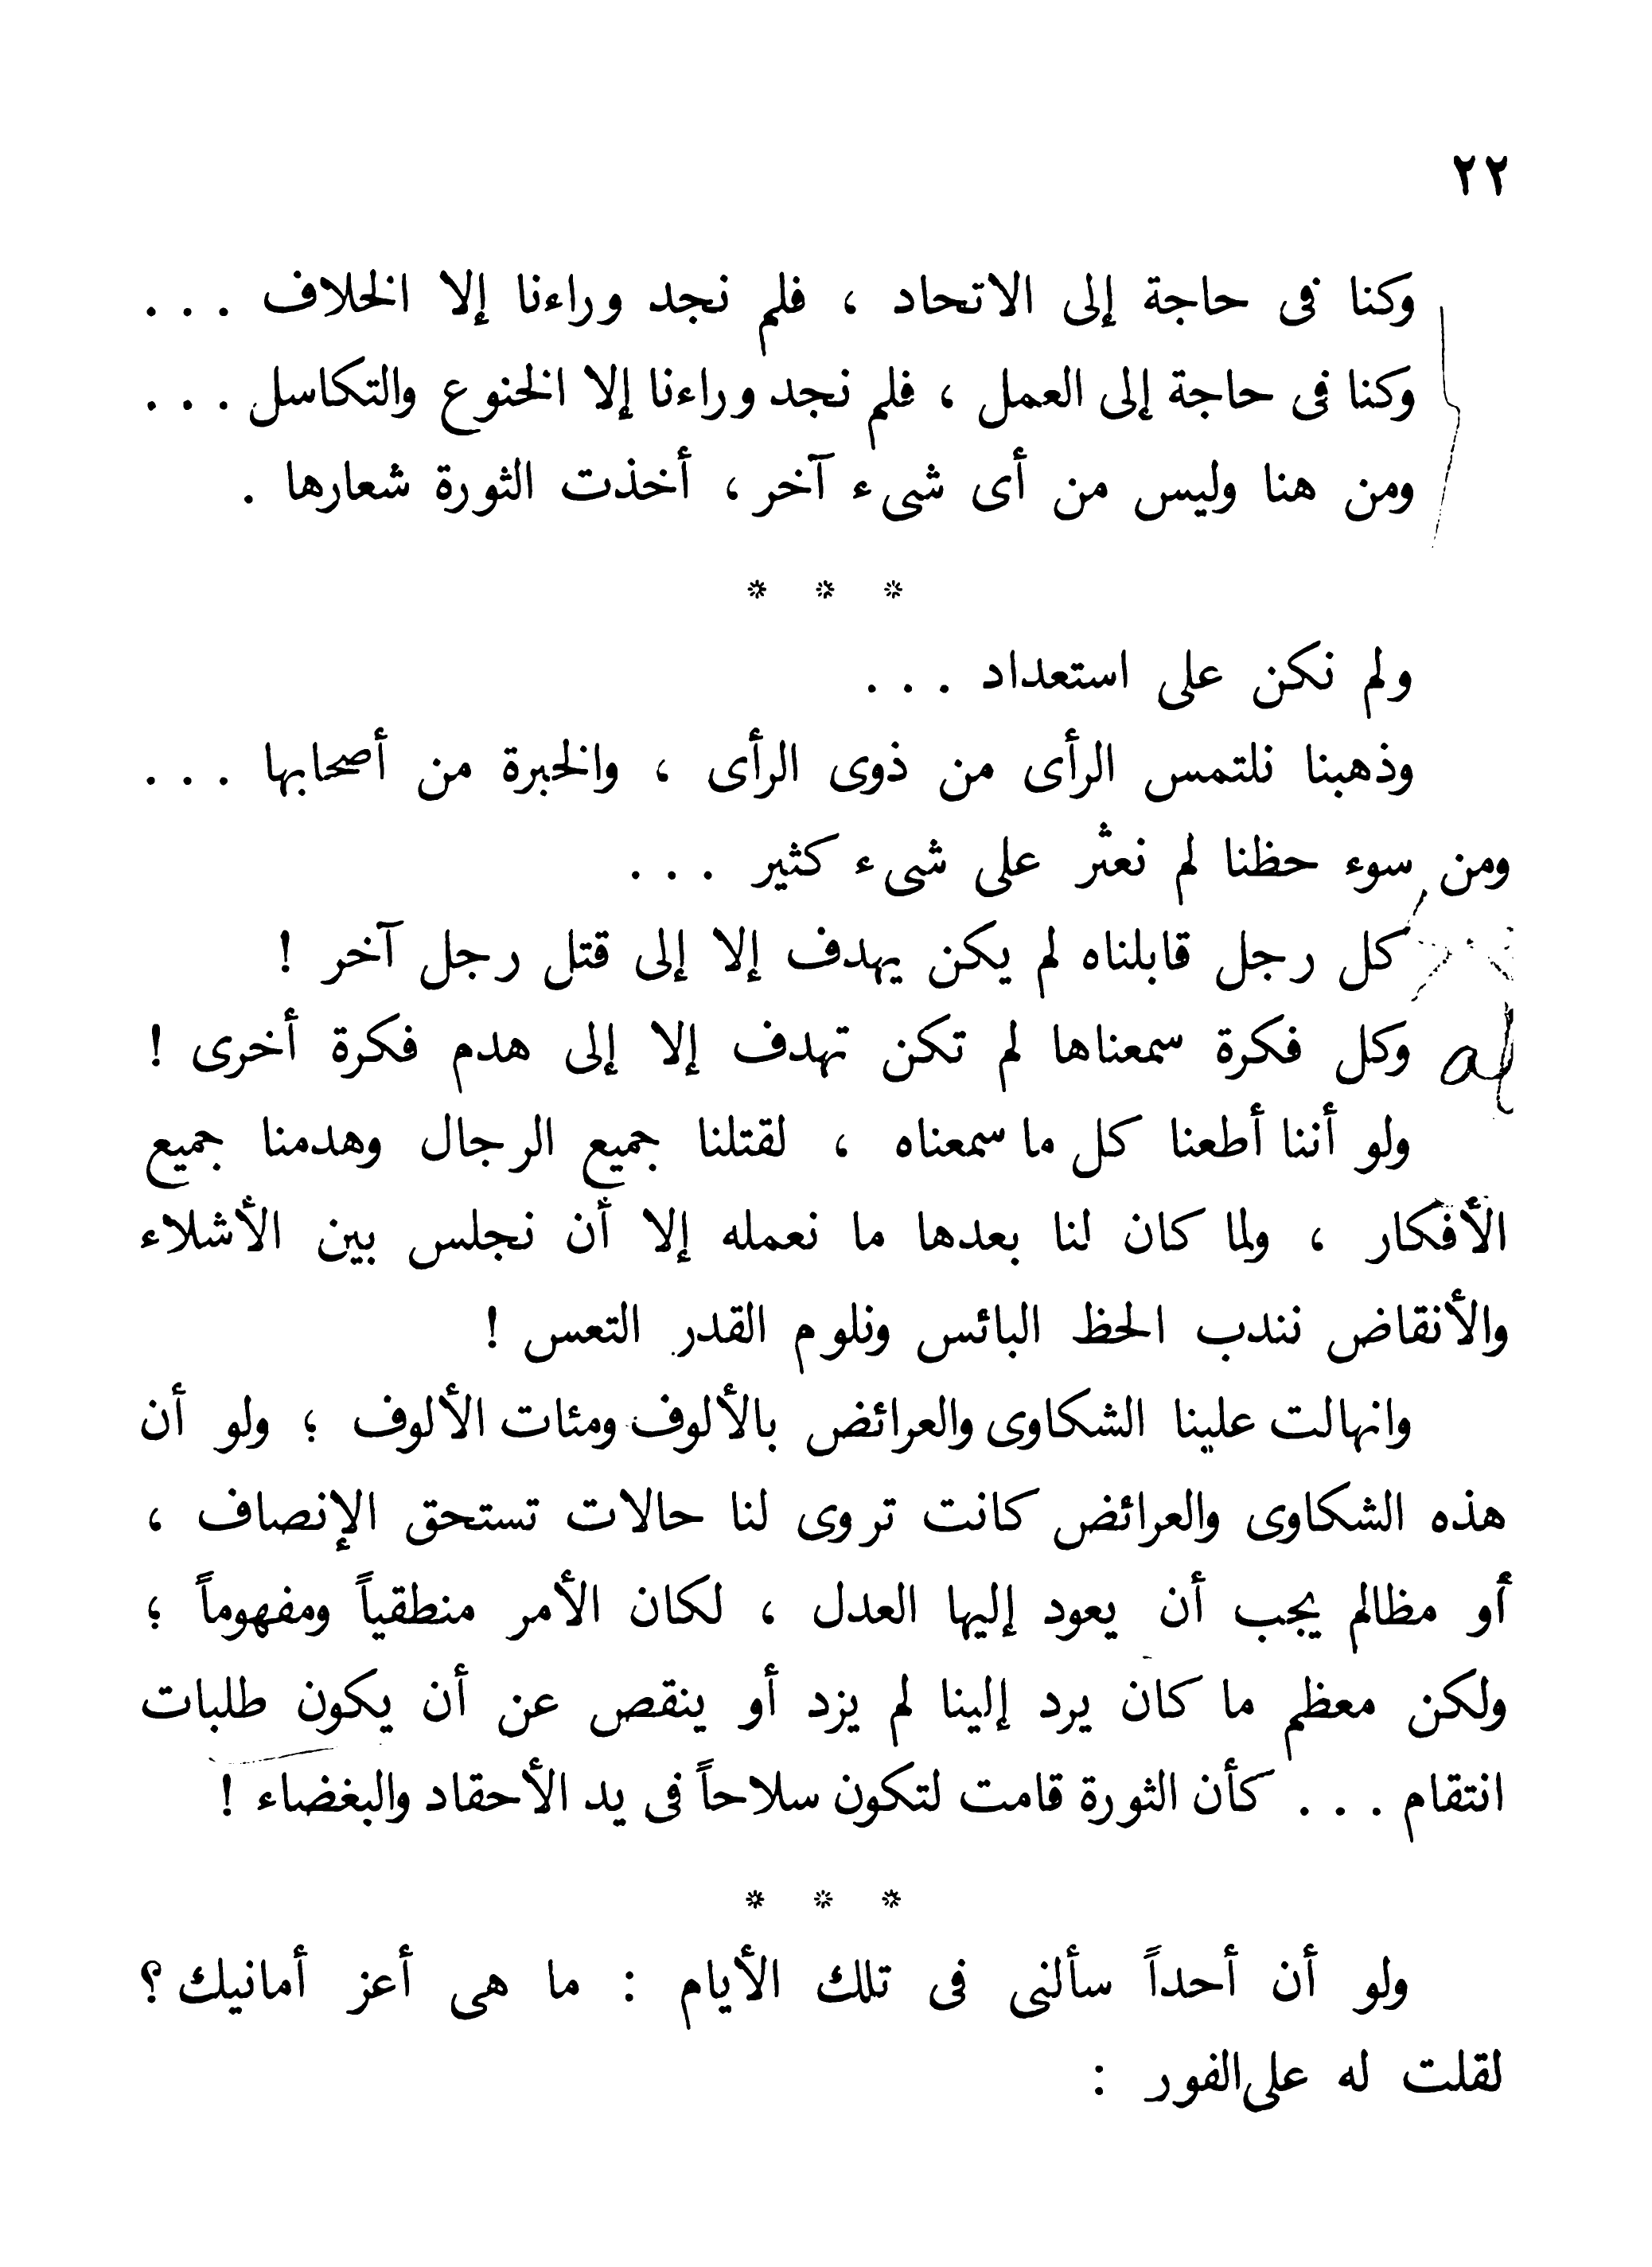 ٢٢
وكنا فى حاجة إلى الاتحاد ، فلم نجد وراءنا إلا الخلاف . . .
وكنا فى حاجة إلى العمل ، فلم نجد وراءنا إلا الخنوع والتكاسل . . .
ومن هنا وليس من أى شىء آخر ، أخذت الثورة شعارها .
* * *
ولم نكن على استعداد . . .
وذهبنا نلتمس الرأى من ذوى الرأى ، والخبرة من أصحابها . . .
ومن سوء حظنا لم نعثر على شىء كثير . . .
كل رجل قابلناه لم يكن يهدف إلا إلى قتل رجل آخر !
وكل فكرة سمعناها لم تكن تهدف إلا إلى هدم فكرة أخرى !
ولو أننا أطعنا كل ما سمعناه ، لقتلنا جميع الرجال وهدمنا جميع
الأفكار ، ولما كان لنا بعدها ما نعمله إلا أن نجلس بين الأشلاء
والأنقاض نندب الحظ البائس ونلوم القدر التعس !
وانهالت علينا الشكاوى والعرائض بالألوف ومئات الألوف ؛ ولو أن
هذه الشكاوى والعرائض كانت تروى لنا حالات تستحق الإنصاف ،
أو مظالم يجب أن يعود إليها العدل ، لكان الأمر منطقياً ومفهوماً ؛
ولكن معظم ما كان يرد إلينا لم يزد أو ينقص عن أن يكون طلبات
انتقام . . . كأن الثورة قامت لتكون سلاحاً فى يد الأحقاد والبغضاء !
* * *
ولو أن أحداً سألنى فى تلك الأيام : ما هى أعز أمانيك ؟
لقلت له على الفور :